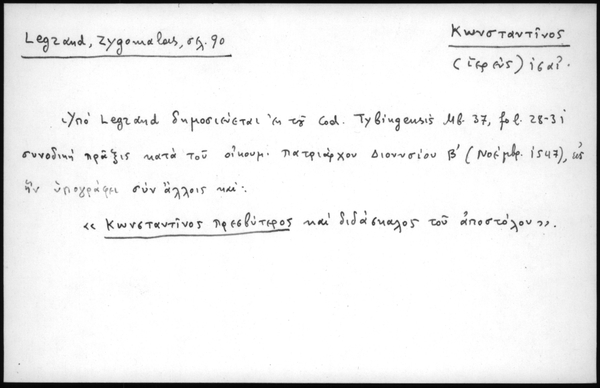 Legrand, Zygomalas, σελ. 90
Κωνσταντῖνος
(ἱερεὺς) ις αἰ.
Ὑπὸ Legrand δημοσιεύεται ἐκ τοῦ Cod. Tybingensis Mb. 37, fol. 28-31
συνοδικὴ πρᾶξις κατὰ τοῦ οἰκουμ. Πατριάρχου Διονυσίου Β' (Νοέμβρ. 1547), εἰς
ἣν ὑπογράφει σὺν ἄλλοις καὶ:
«Κωνσταντῖνος πρεσβύτερος καὶ διδάσκαλος τοῦ ἀποστόλου».